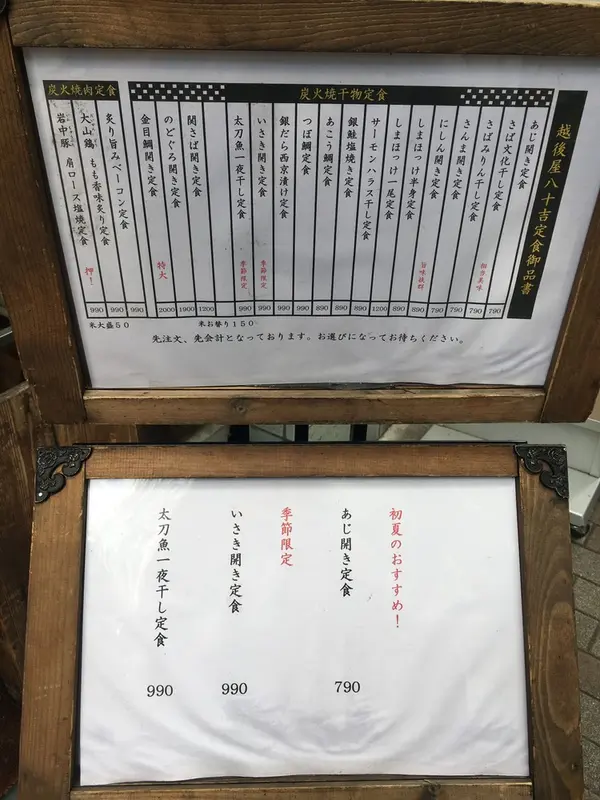 越後屋八十吉定食御品書
炭火焼干物定食
あじ開き定食 790
さば文化干し定食 790
さばみりん干し定食 相当美味 790
さんま開き定食 790
にしん開き定食 890
しまほっけ半身定食 旨味抜群 890
しまほっけ一尾定食 1200
サーモンハラス干し定食 890
銀鮭塩焼き定食 890
あこう鯛定食 890
つぼ鯛定食 990
銀だら西京漬け定食 990
いさき開き定食 季節限定 990
太刀魚一夜干し定食 季節限定 990
関さば開き定食 1200
のどぐろ開き定食 特大 1900
金目鯛開き定食 2000
炭火焼肉定食
炙り旨みベーコン定食 990
大山鶏 もも香味炙り定食 990
岩中豚 肩ロース塩焼定食 押! 990
米大盛50
米お替り150
先注文、先会計となっております。お選びになってお待ちください。
初夏のおすすめ!
あじ開き定食 790
季節限定
いさき開き定食 990
太刀魚一夜干し定食 990